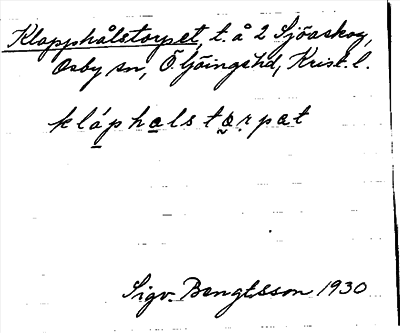 Klapphålstorpet, t. å 2 Sjöaskog,
Osby sn, Ö Göingehd, Krist. l.
kláphalstorpət
Sigv. Bengtsson 1930